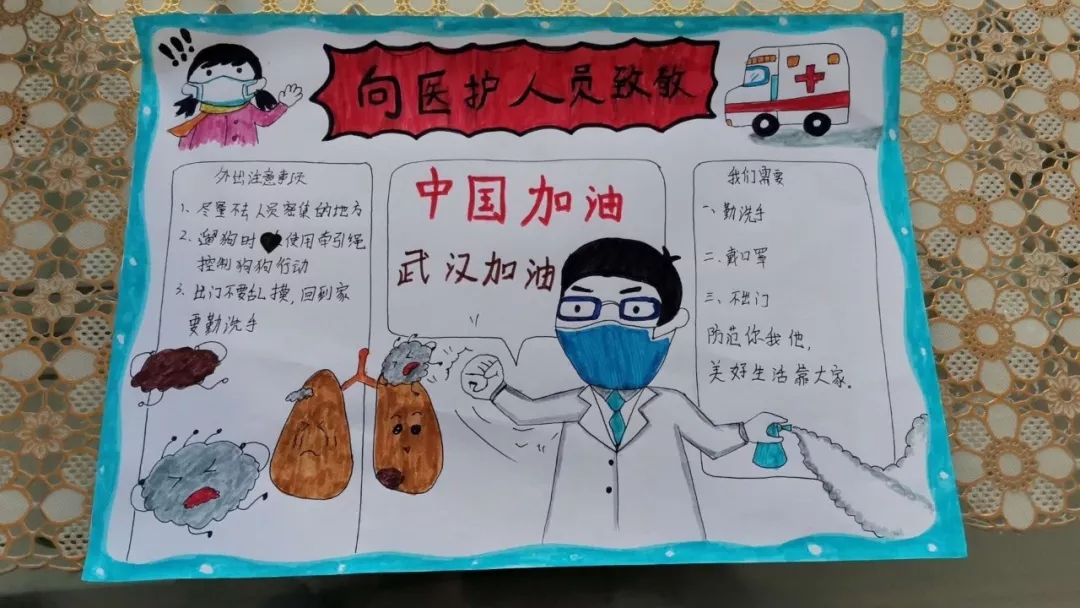 向医护人员致敬
外出注意事项
1、尽量不去人员密集的地方
2、遛狗时使用牵引绳
控制狗狗行动
3、出门不要乱摸,回到家
要勤洗手
中国加油
武汉加油
我们需要
一、勤洗手
二、戴口罩
三、不出门
防范你我他,
美好生活靠大家。